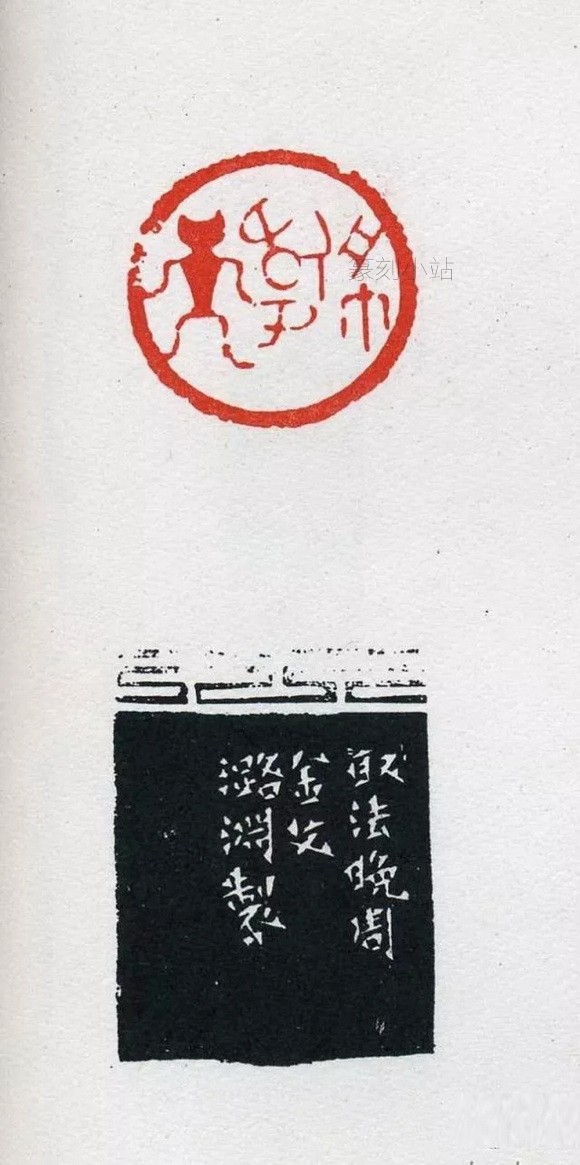 篆刻小站
取法晚周
金文
潞淵製